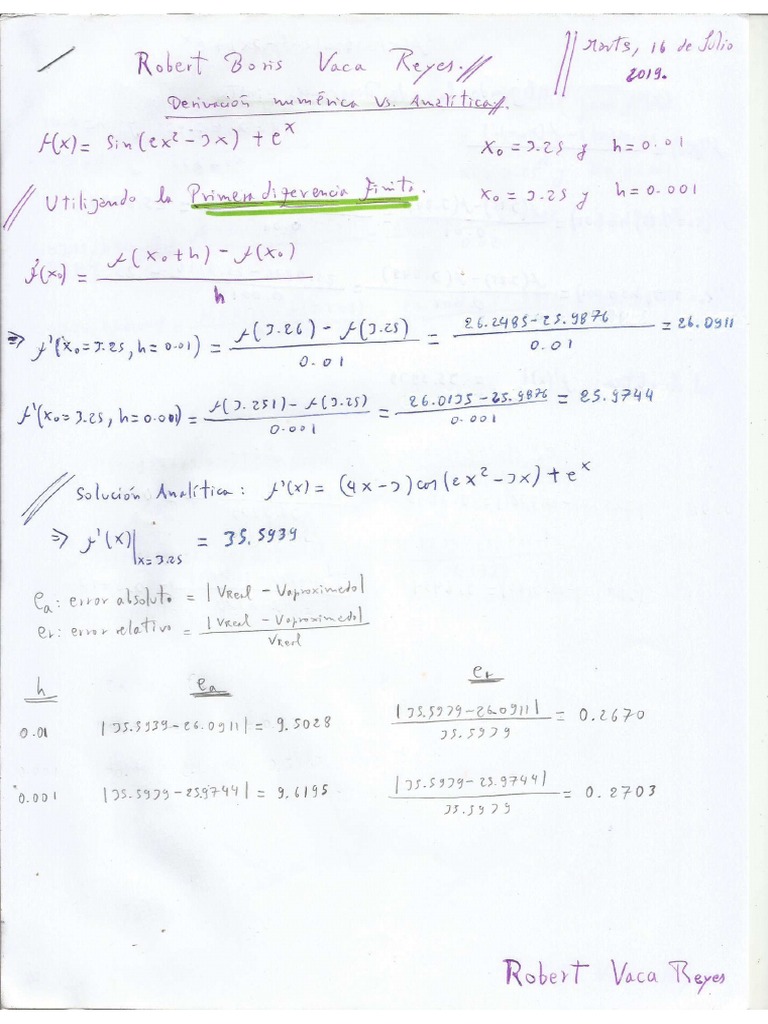 Robert Boris Vaca Reyes.//
Marts, 16 de Julio
2019.
Derivación numérica vs. Analítica//.
f(x) = sin(2x² - 3x) + e^x
x₀ = 3.25 y h = 0.01
x₀ = 3.25 y h = 0.001
// Utilizando la Primera diferencia Finita.
f'(x₀) = (f(x₀+h) - f(x₀)) / h
⇒ f'(x₀=3.25, h=0.01) = (f(3.26) - f(3.25)) / 0.01 = (26.2485 - 25.9876) / 0.01 = 26.0911
f'(x₀=3.25, h=0.001) = (f(3.251) - f(3.25)) / 0.001 = (26.0135 - 25.9876) / 0.001 = 25.9744
// Solución Analítica: f'(x) = (4x-3)cos(2x²-3x) + e^x
⇒ f'(x)|x=3.25 = 35.5939
ea: error absoluto = |VReal - Vaproximado|
er: error relativo = |VReal - Vaproximado| / VReal
h ea er
0.01 |35.5939-26.0911| = 9.5028 |35.5939-26.0911| / 35.5939 = 0.2670
0.001 |35.5939-25.9744| = 9.6195 |35.5939-25.9744| / 35.5939 = 0.2703
Robert Vaca Reyes